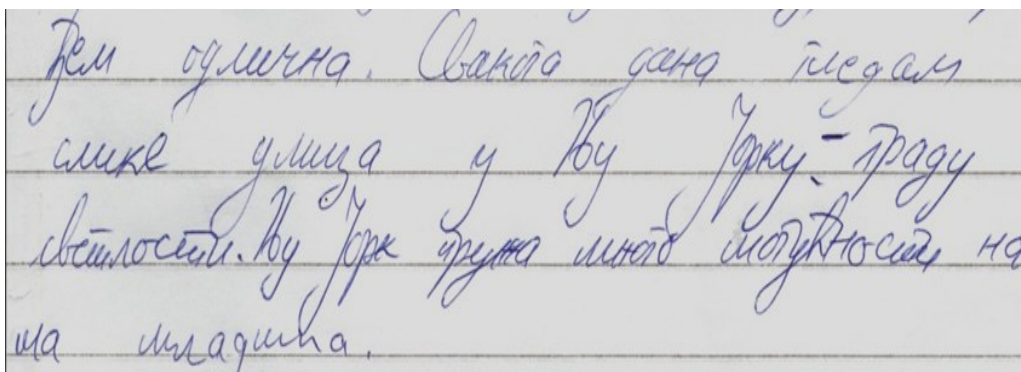 ћем одлична. Свакога дана гледам
слике улица у Њу Јорку - граду
светлости. Њу Јорк пружа много могућности на
ма младима.